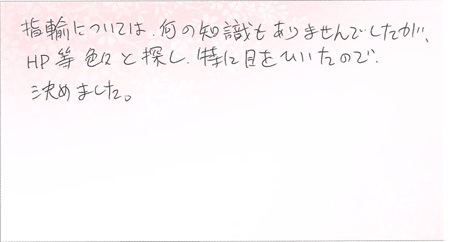 指輪については、何の知識もありませんでしたが、
HP等色々と探し、特に目をひいたので、
決めました。